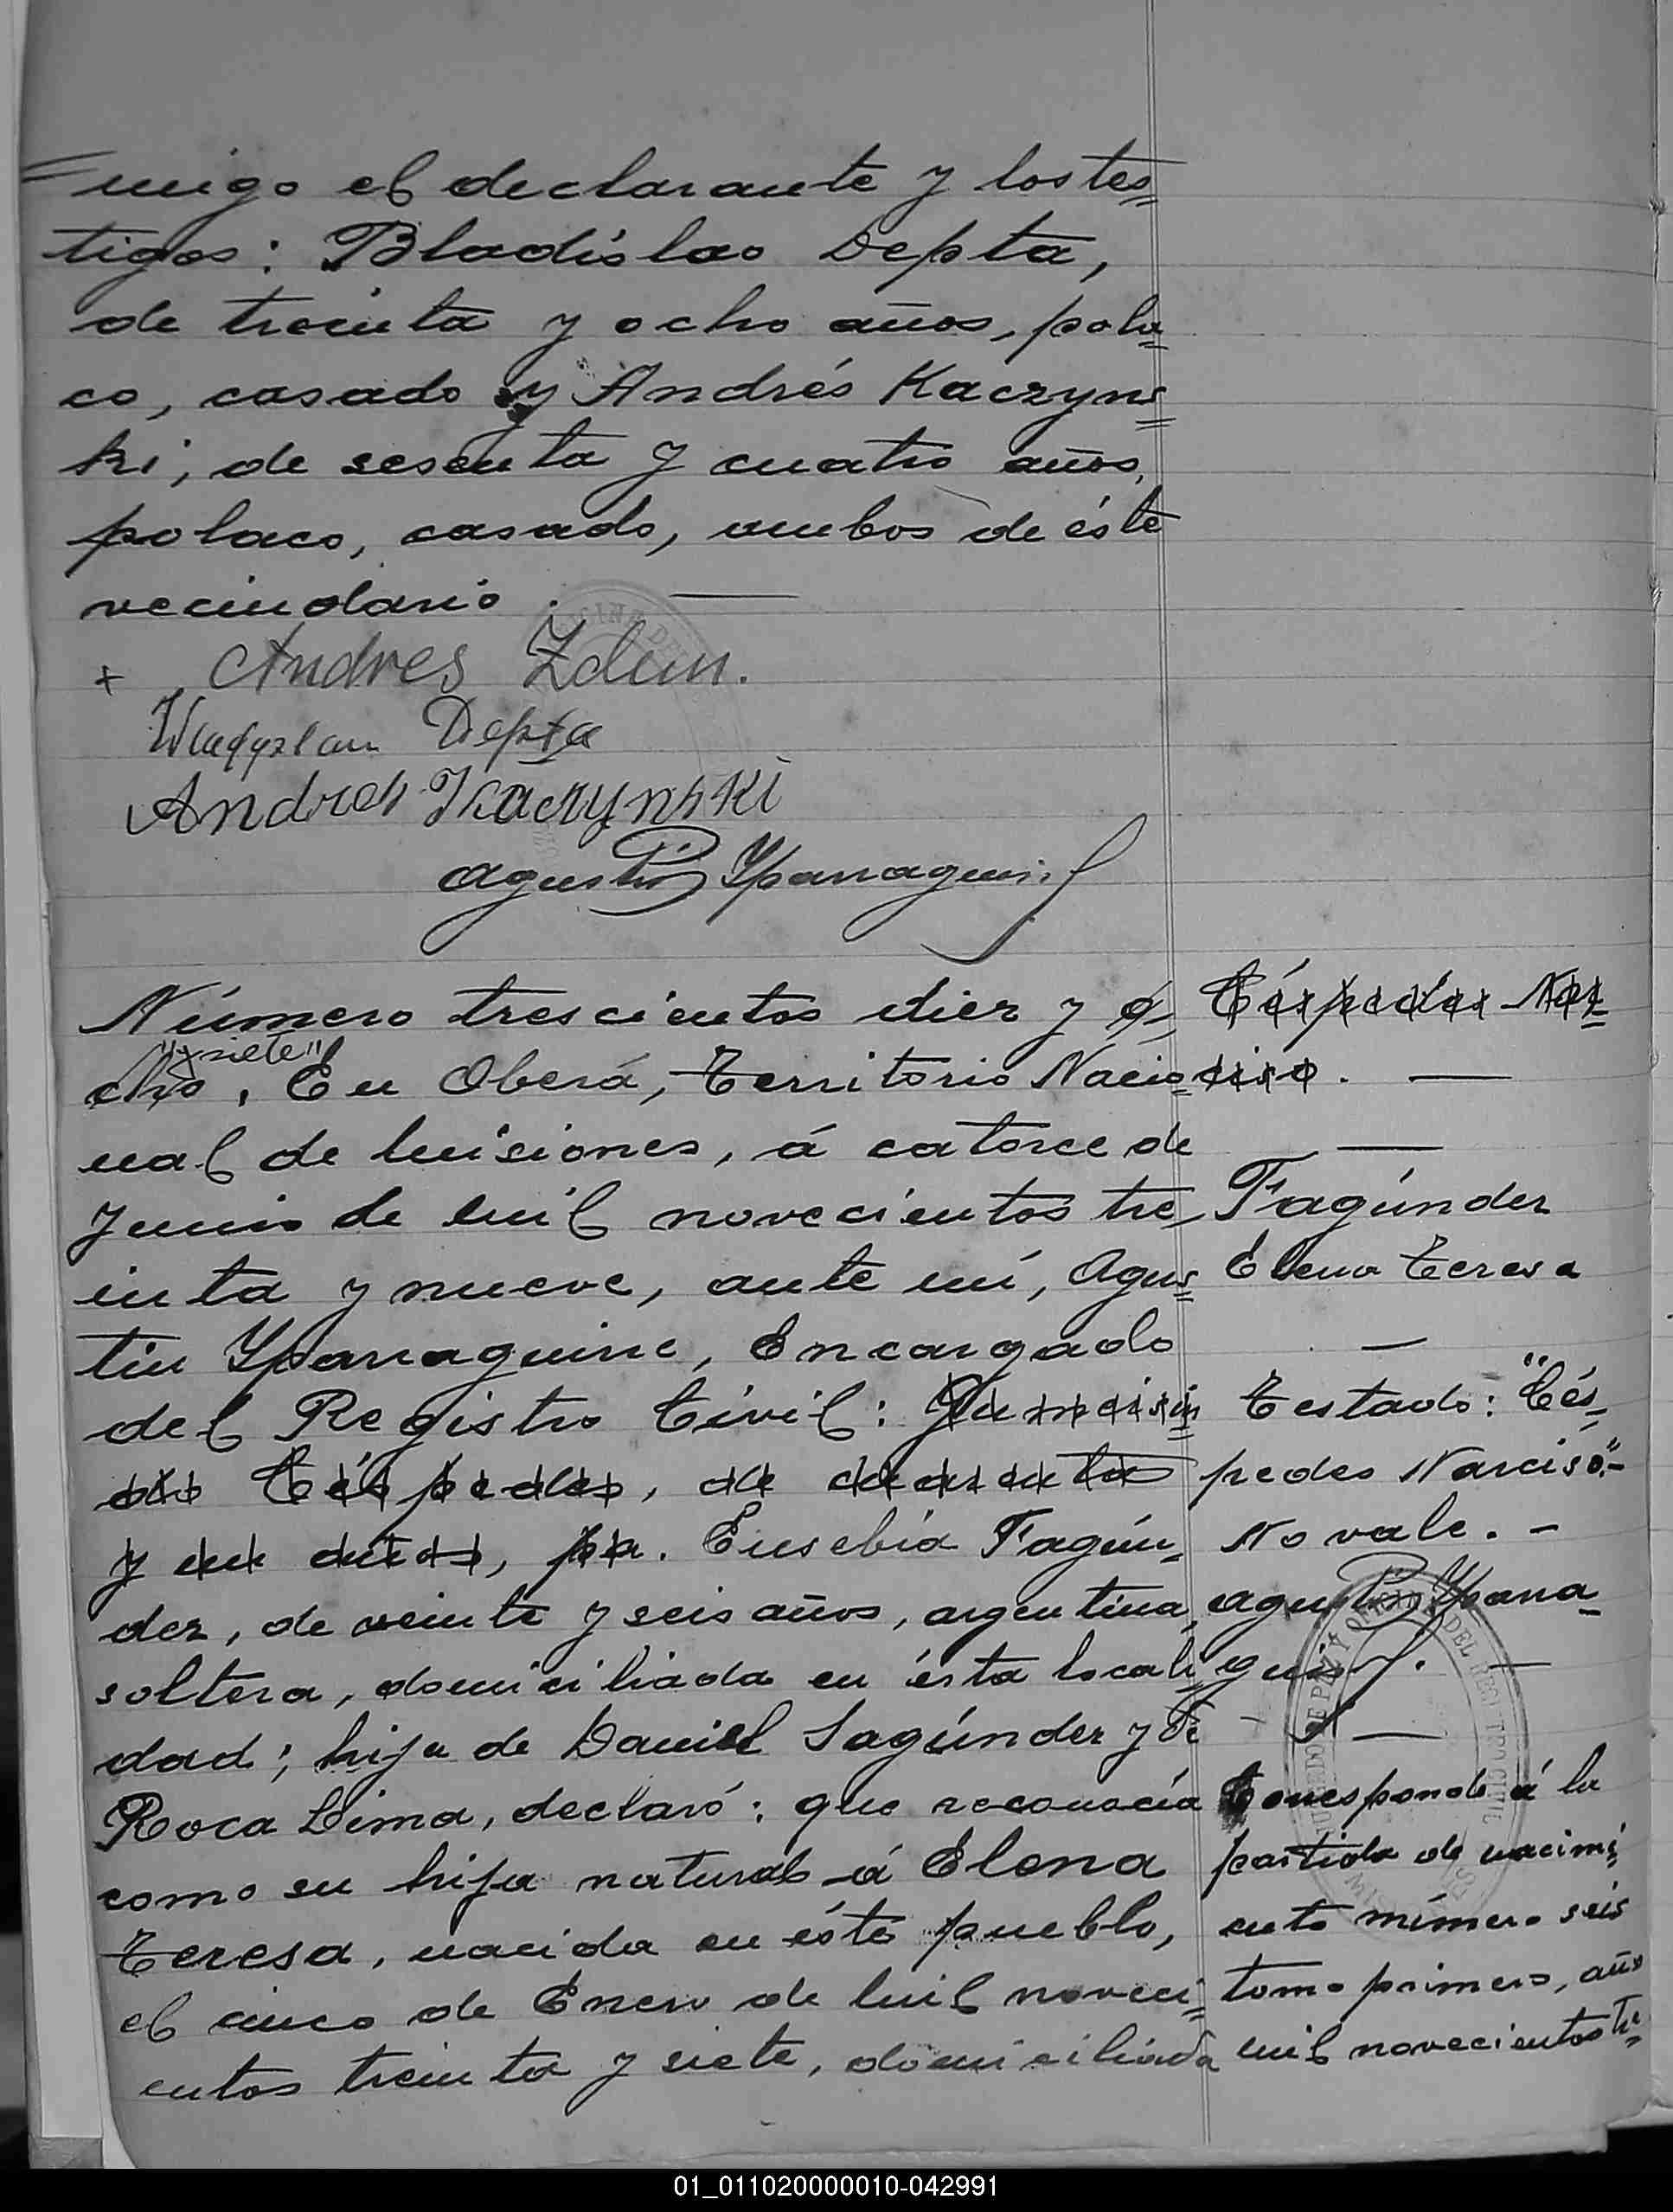 migo el declarante y los tes=
tigos: Bladíslao Depta,
de treinta y ocho años, pola=
co, casado y Andrés Kaczyns=
ki, de sesenta y cuatro años,
polaco, casado, ambos de éste
vecindario.
+ Andres Zdun.
Depta
Andres Kaczynski
Agustin Yparraguirre
Número trescientos diez y o-
"siete"
cho. En Oberá, Territorio Nacio=
nal de Misiones, á catorce de
Junio de mil novecientos tre-
inta y nueve, ante mí, Agus=
tin Yparraguirre, Encargado
del Registro Civil:
Céspedes, de cuarenta
y un años, pa. Eusebia Fagún-
dez, de veinte y seis años, argentina,
soltera, domiciliada en ésta locali-
dad; hija de Daniel Fagúndez y de
Roca Lima, declaró: que reconocía
como su hija natural á Elena
Teresa, nacida en éste pueblo,
el cinco de Enero de mil noveci=
entos treinta y siete, domiciliada
Céspedes Nar=
ciso.
Fagúndez
Elena Teresa
Testado: "Cés-
pedes Narciso".-
No vale. -
Agustin Yparra-
guirre.
Corresponde á la
partida de nacimi=
ento número seis
tomo primero, año
mil novecientos tre=
01_011020000010-042991